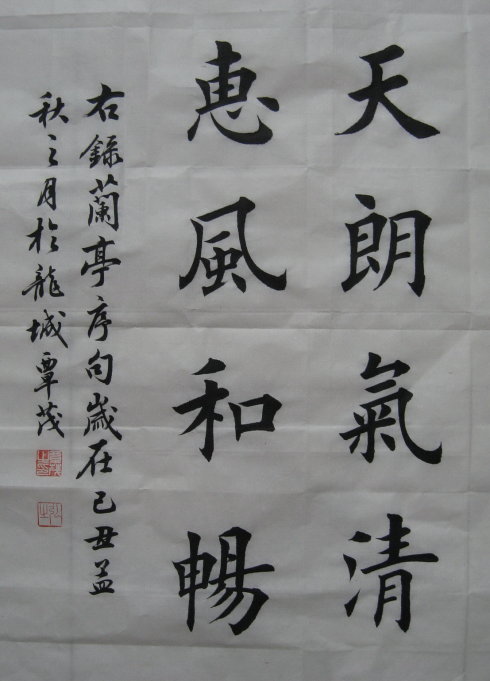 天朗氣清
惠風和暢
右錄蘭亭序句歲在己丑孟
秋之月於龍城覃茂